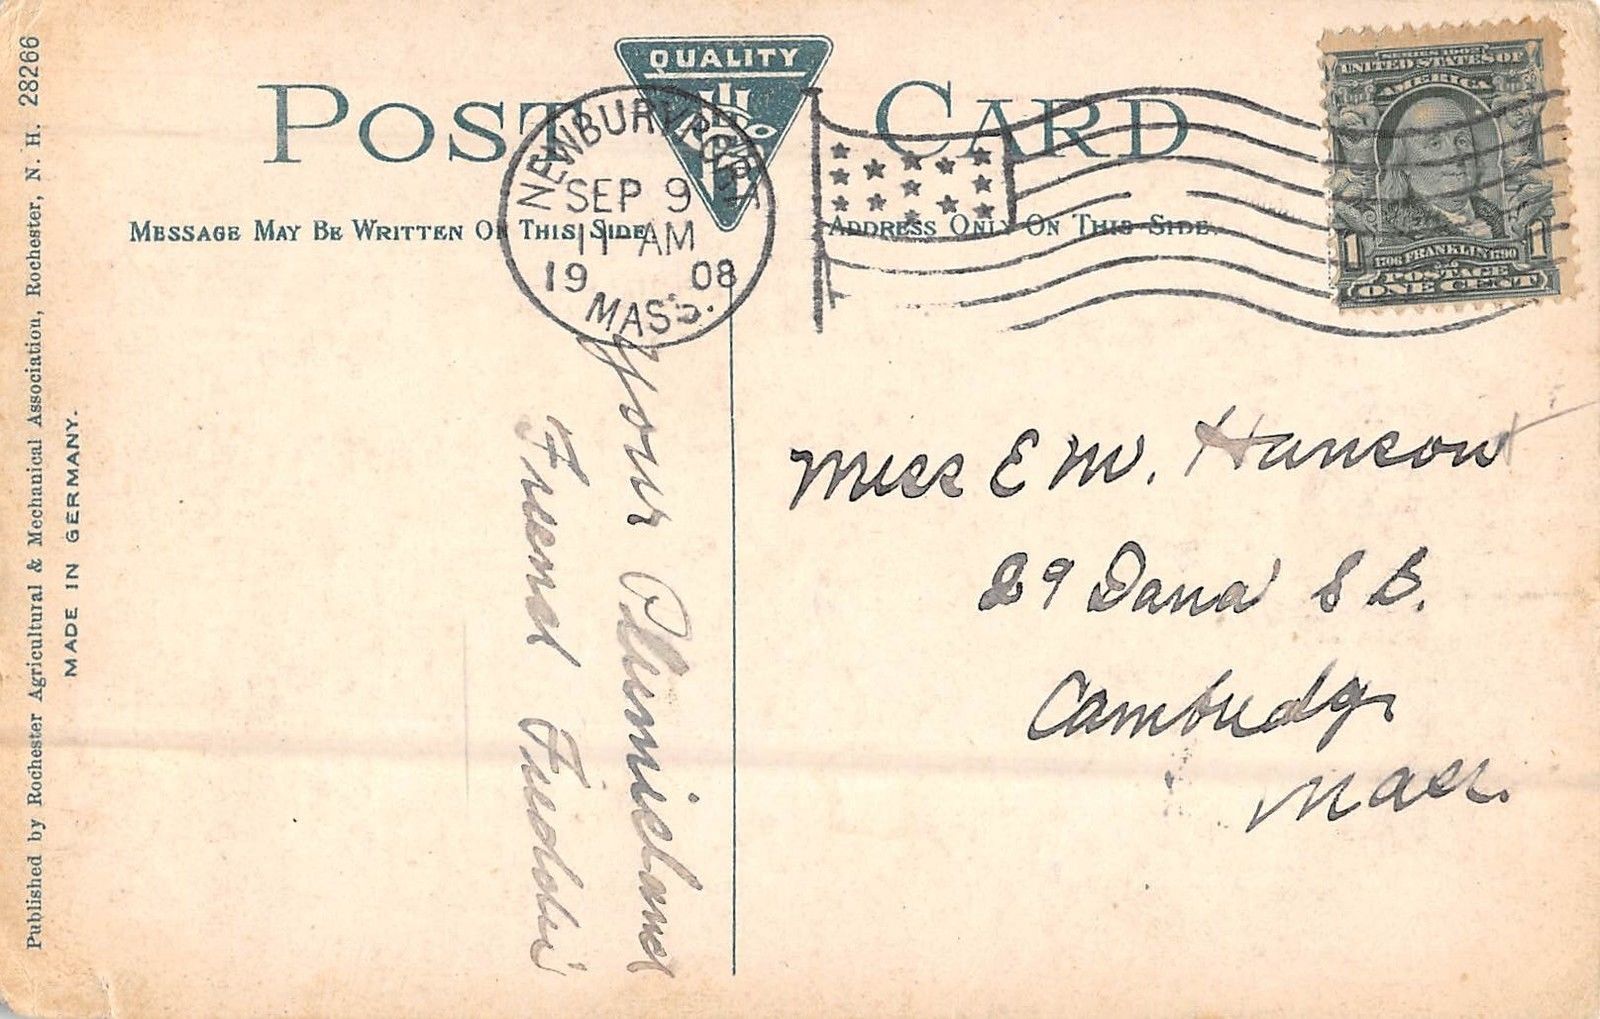 Published by Rochester Agricultural & Mechanical Association, Rochester, N. H. 28266
MADE IN GERMANY.
POST CARD
QUALITY
MESSAGE MAY BE WRITTEN ON THIS SIDE
ADDRESS ONLY ON THIS SIDE.
NEWBURYPORT
SEP 9
11 AM
19 08
MASS.
SERIES 1902
UNITED STATES OF
AMERICA
1706 FRANKLIN 1790
1 1
POSTAGE
ONE CENT
Your
Friend Freddie
Miss E M. Hanson
29 Dana St.
Cambridge
Mass.